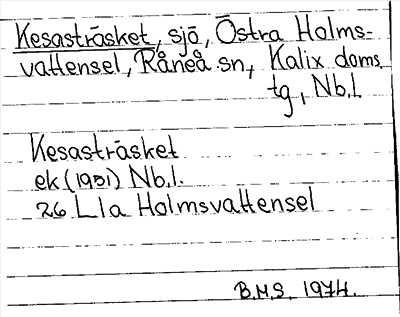 Kesasträsket, sjö, Östra Holms-
vattensel, Råneå sn, Kalix doms.
tg, Nb.l.
Kesasträsket
ek (1951) Nb.l.
26 L1a Holmsvattensel
B.M.S. 1974.